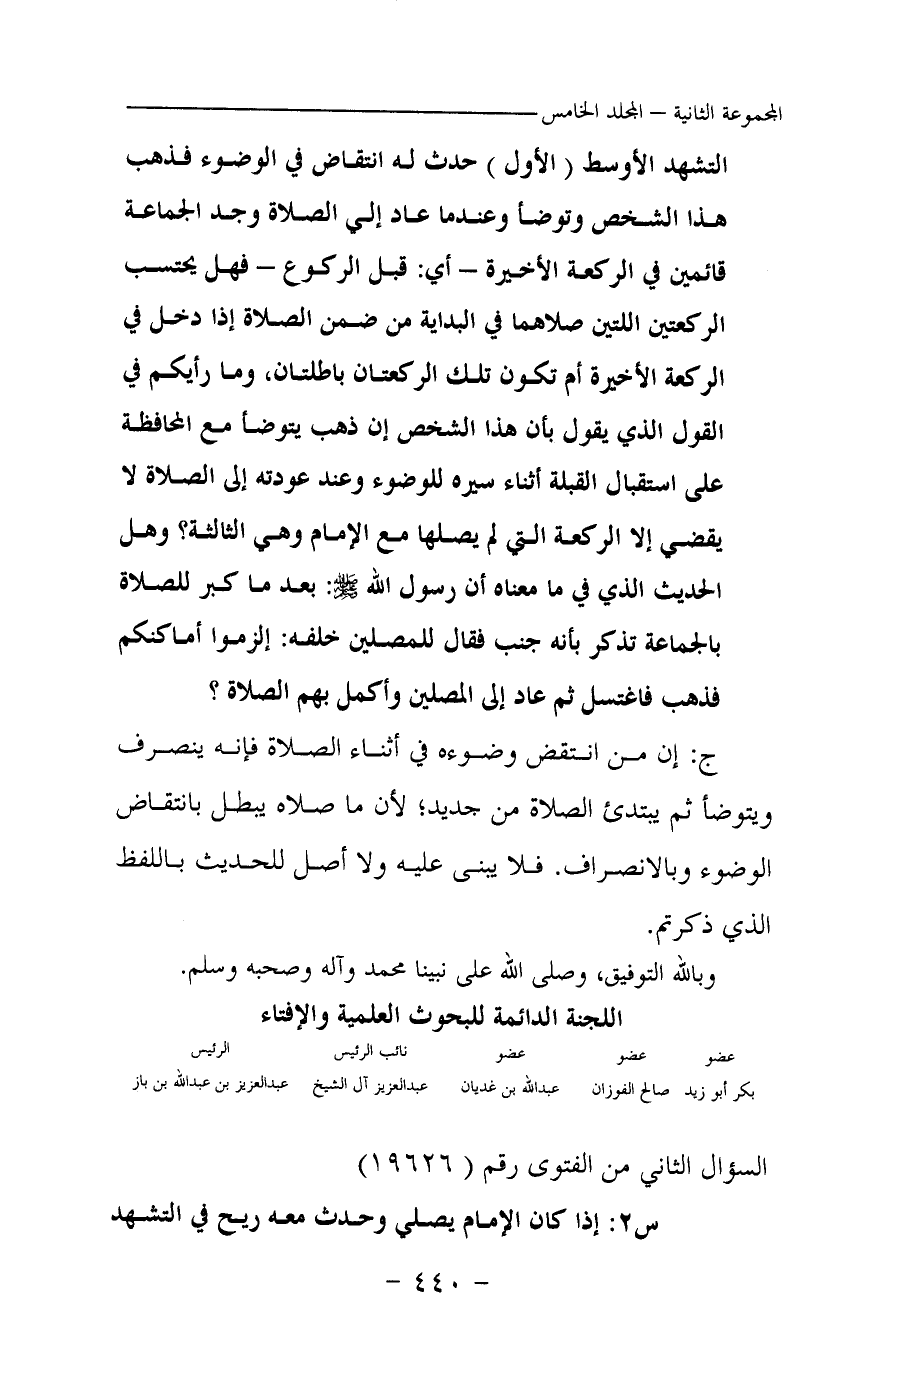 المجموعة الثانية – المجلد الخامس
التشهد الأوسط ( الأول ) حدث له انتقاض في الوضوء فذهب
هذا الشخص وتوضأ وعندما عاد إلي الصلاة وجد الجماعة
قائمين في الركعة الأخيرة – أي: قبل الركوع – فهل يحتسب
الركعتين اللتين صلاهما في البداية من ضمن الصلاة إذا دخل في
الركعة الأخيرة أم تكون تلك الركعتان باطلتان، وما رأيكم في
القول الذي يقول بأن هذا الشخص إن ذهب يتوضأ مع المحافظة
على استقبال القبلة أثناء سيره للوضوء وعند عودته إلى الصلاة لا
يقضي إلا الركعة التي لم يصلها مع الإمام وهي الثالثة؟ وهل
الحديث الذي في ما معناه أن رسول الله ﷺ: بعد ما كبر للصلاة
بالجماعة تذكر بأنه جنب فقال للمصلين خلفه: إلزموا أماكنكم
فذهب فاغتسل ثم عاد إلى المصلين وأكمل بهم الصلاة ؟
ج: إن من انتقض وضوءه في أثناء الصلاة فإنه ينصرف
ويتوضأ ثم يبتدئ الصلاة من جديد؛ لأن ما صلاه يبطل بانتقاض
الوضوء وبالانصراف. فلا يبنى عليه ولا أصل للحديث باللفظ
الذي ذكرتم.
وبالله التوفيق، وصلى الله على نبينا محمد وآله وصحبه وسلم.
اللجنة الدائمة للبحوث العلمية والإفتاء
عضو عضو عضو نائب الرئيس الرئيس
بكر أبو زيد صالح الفوزان عبدالله بن غديان عبدالعزيز آل الشيخ عبدالعزيز بن عبدالله بن باز
السؤال الثاني من الفتوى رقم ( ١٩٦٢٦)
س٢: إذا كان الإمام يصلي وحدث معه ريح في التشهد
– ٤٤٠ –